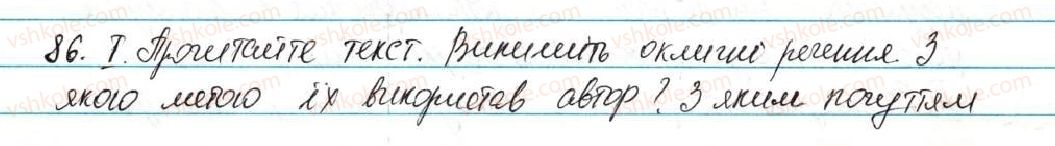 86. I. Прочитайте текст. Випишіть окличні речення. З
якого метою їх використав автор? З яким почуттям